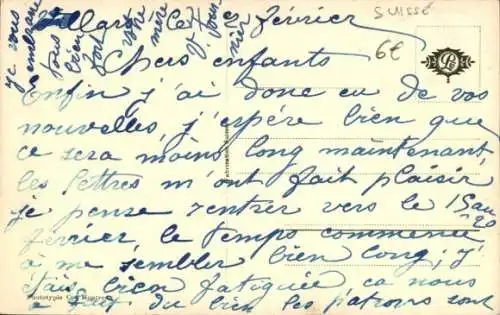 Villars le 1er Février
SUISSE
6€
Chers enfants
Enfin j'ai donc eu de vos
nouvelles, j'espère bien que
ce sera moins long maintenant,
les lettres m'ont fait plaisir
je pense rentrer vers le 15 au 20
février, le temps commence
à me sembler bien long; j'
étais bien fatiguée ça nous
a fait du bien les patrons sont
Je vous embrasse
tous bien fort
votre mère
Phototypie Co.